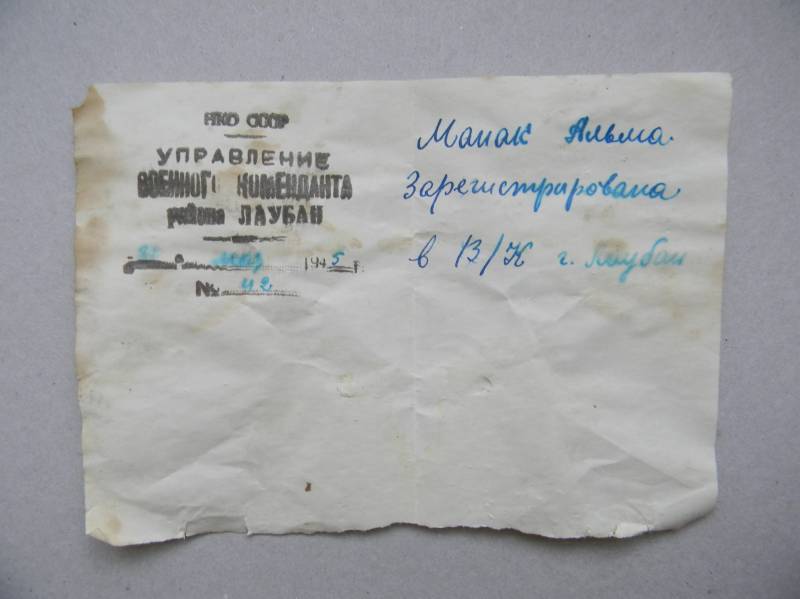 НКО СССР
УПРАВЛЕНИЕ
ВОЕННОГО КОМЕНДАНТА
района ЛАУБАН
мая 1945 г.
№ 42
Манак Альма.
Зарегистрирована
в В/К г. Лаубан